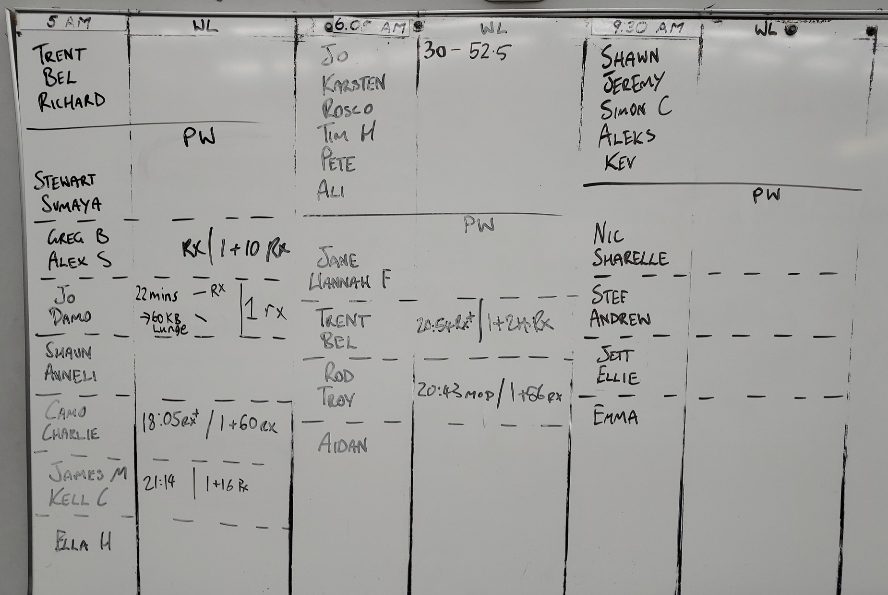 5 AM WL
TRENT
BEL
RICHARD
PW
STEWART
SUMAYA
GREG B
ALEX S
RX | 1+10 RX
JO
DAMO
22mins – RX
→60KB
Lunge
1 rx
SHAUN
ANNELI
CAMO
CHARLIE
18:05RX+ / 1+60RX
JAMES M
KELL C
21:14 | 1+16 Rx
ELLA H
6.00 AM WL
JO
30 - 52.5
KARSTEN
ROSCO
TIM H
PETE
ALI
PW
JANE
HANNAH F
TRENT
BEL
ROD
TROY
20:43 MOD / 1+56 RX
AIDAN
9.30 AM WL
SHAWN
JEREMY
SIMON C
ALEKS
KEV
PW
NIC
SHARELLE
STEF
ANDREW
JETT
ELLIE
EMMA